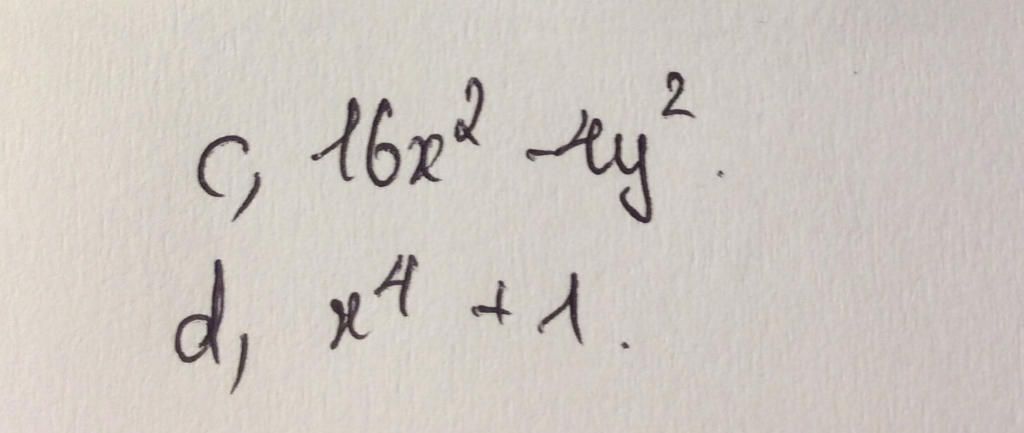 c, 16x² - 4y².
d, x⁴ + 1.